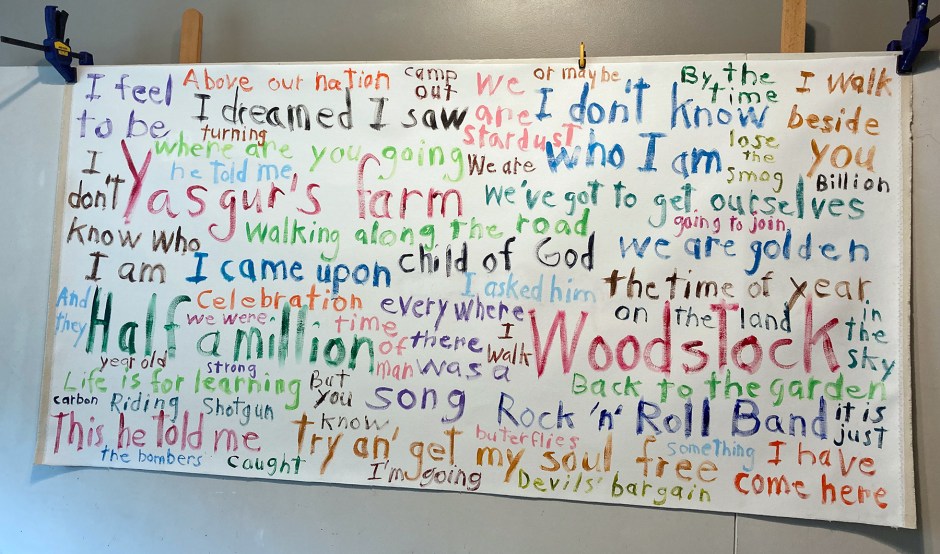 I feel
to be
Above our nation
camp
out
we
are
stardust
or maybe
By the
time
I walk
beside
you
I dreamed I saw
I don't know
who I am
turning
where are you going
he told me
We are
lose
the
smog
Billion
I
don't
know who
I am
Yasgur's farm
we've got to get ourselves
going to join
walking along the road
child of God
we are golden
I came upon
I asked him
the time of year
And
they
Celebration
everywhere
on the land
in
the
sky
Half a million
we were
time
of
man
there
was a
song
I
walk
Woodstock
year old
strong
Life is for learning
But
you
know
Back to the garden
carbon
Riding
Shotgun
Rock 'n' Roll Band
it is
just
This he told me
try an' get my soul free
buterflies
something
I have
come here
the bombers
caught
I'm going
Devils' bargain